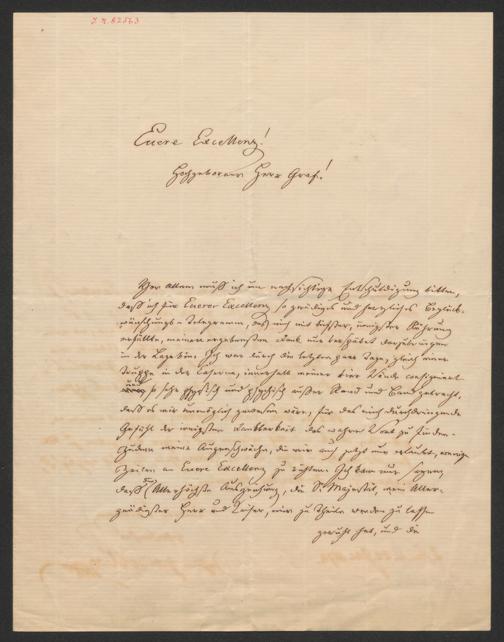 I. N. 82563
Euere Excellenz!
Hochgeborener Herr Graf!
Vor Allem muß ich um nachsichtige Entschuldigung bitten,
daß ich für Euerer Excellenz so gnädiges und herzliches Beglück-
wünschungs-Telegramm, das mich mit tiefster, innigster Rührung
erfüllte, meinen ergebensten Dank nur verspätet darzubringen
in der Lage bin. Ich war durch die letzten paar Tage, gleich einer
Truppe in der Caserne, innerhalb meiner vier Wände consignirt
und so sehr physisch und psychisch außer Stand und Band gebracht,
daß es mir unmöglich gewesen wäre, für das mich durchdringende
Gefühl der innigsten Dankbarkeit das wahre Wort zu finden.
meine Augenschwäche, die mir auch jetzt nur erlaubt, wenige
Zeilen an Euere Excellenz zu richten. Ich kann nur sagen,
daß die Allerhöchste Auszeichnung, die S. Majestät, mein Aller-
gnädigster Herr und Kaiser, mir zu Theil werden zu lassen
geruht hat, und die